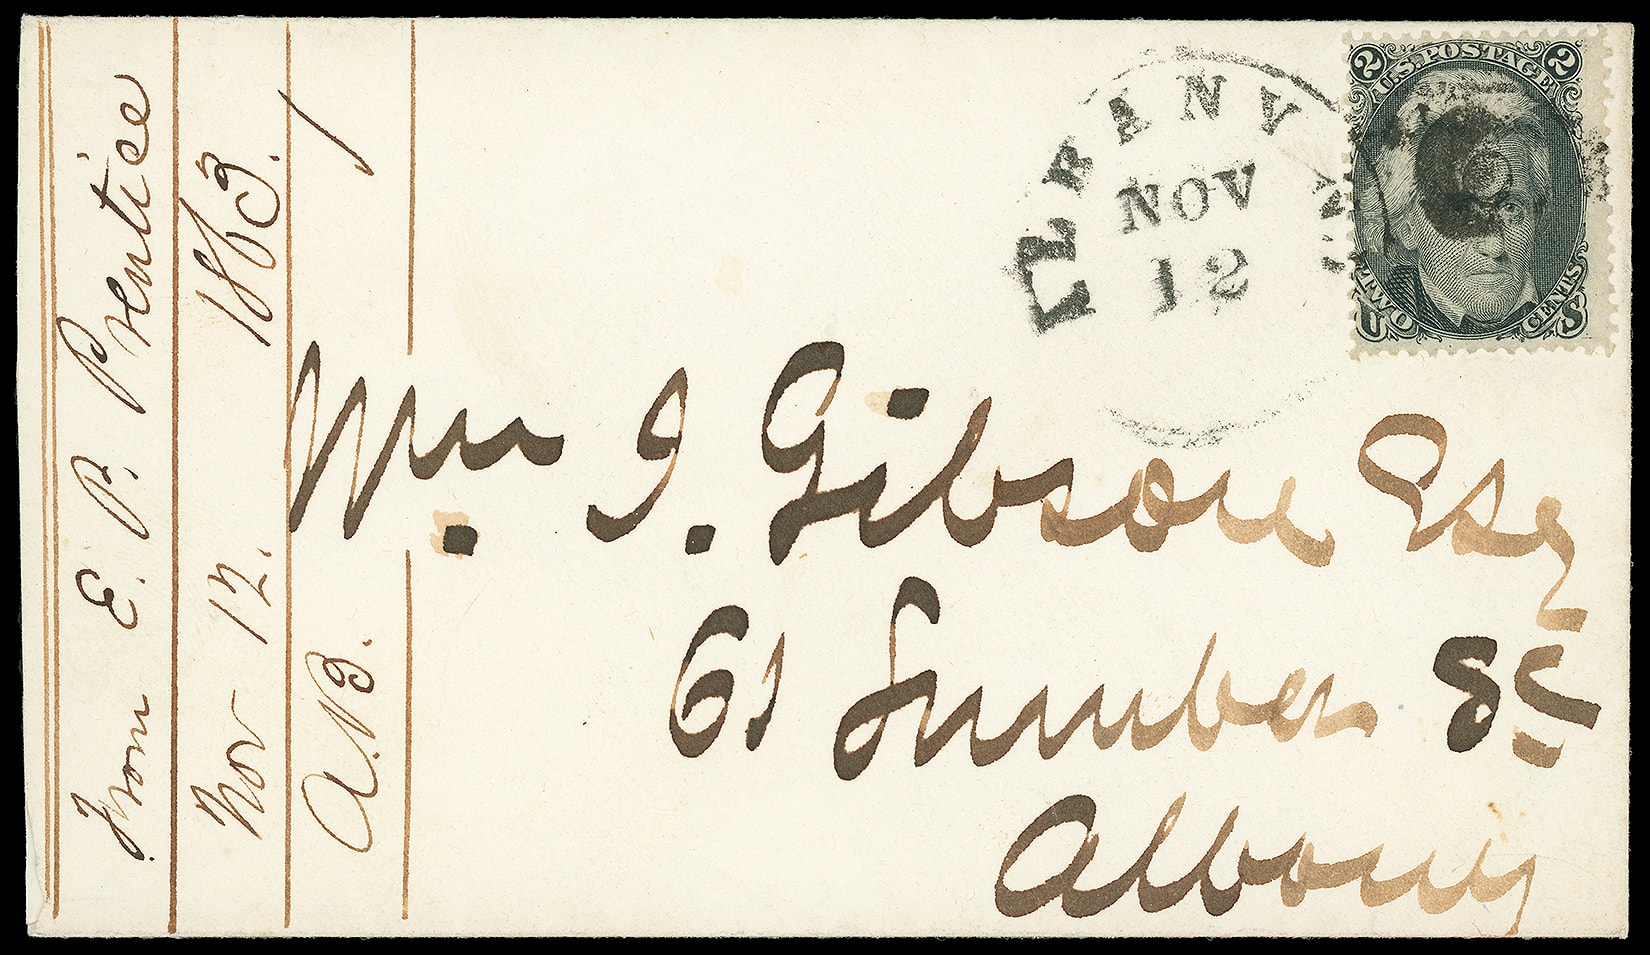 From E. P. Prentice
Nov 12. 1863.
A.B. 1
ALBANY N.Y.
NOV
12
2 U.S. POSTAGE 2
U TWO CENTS S
Wm. J. Gibson Esq
61 Lumber St
Albany